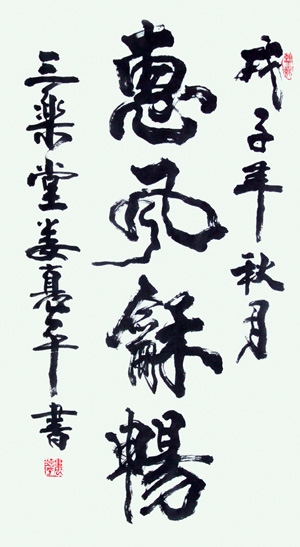 戊子年秋月
惠風龢暢
三樂堂姜惠平書